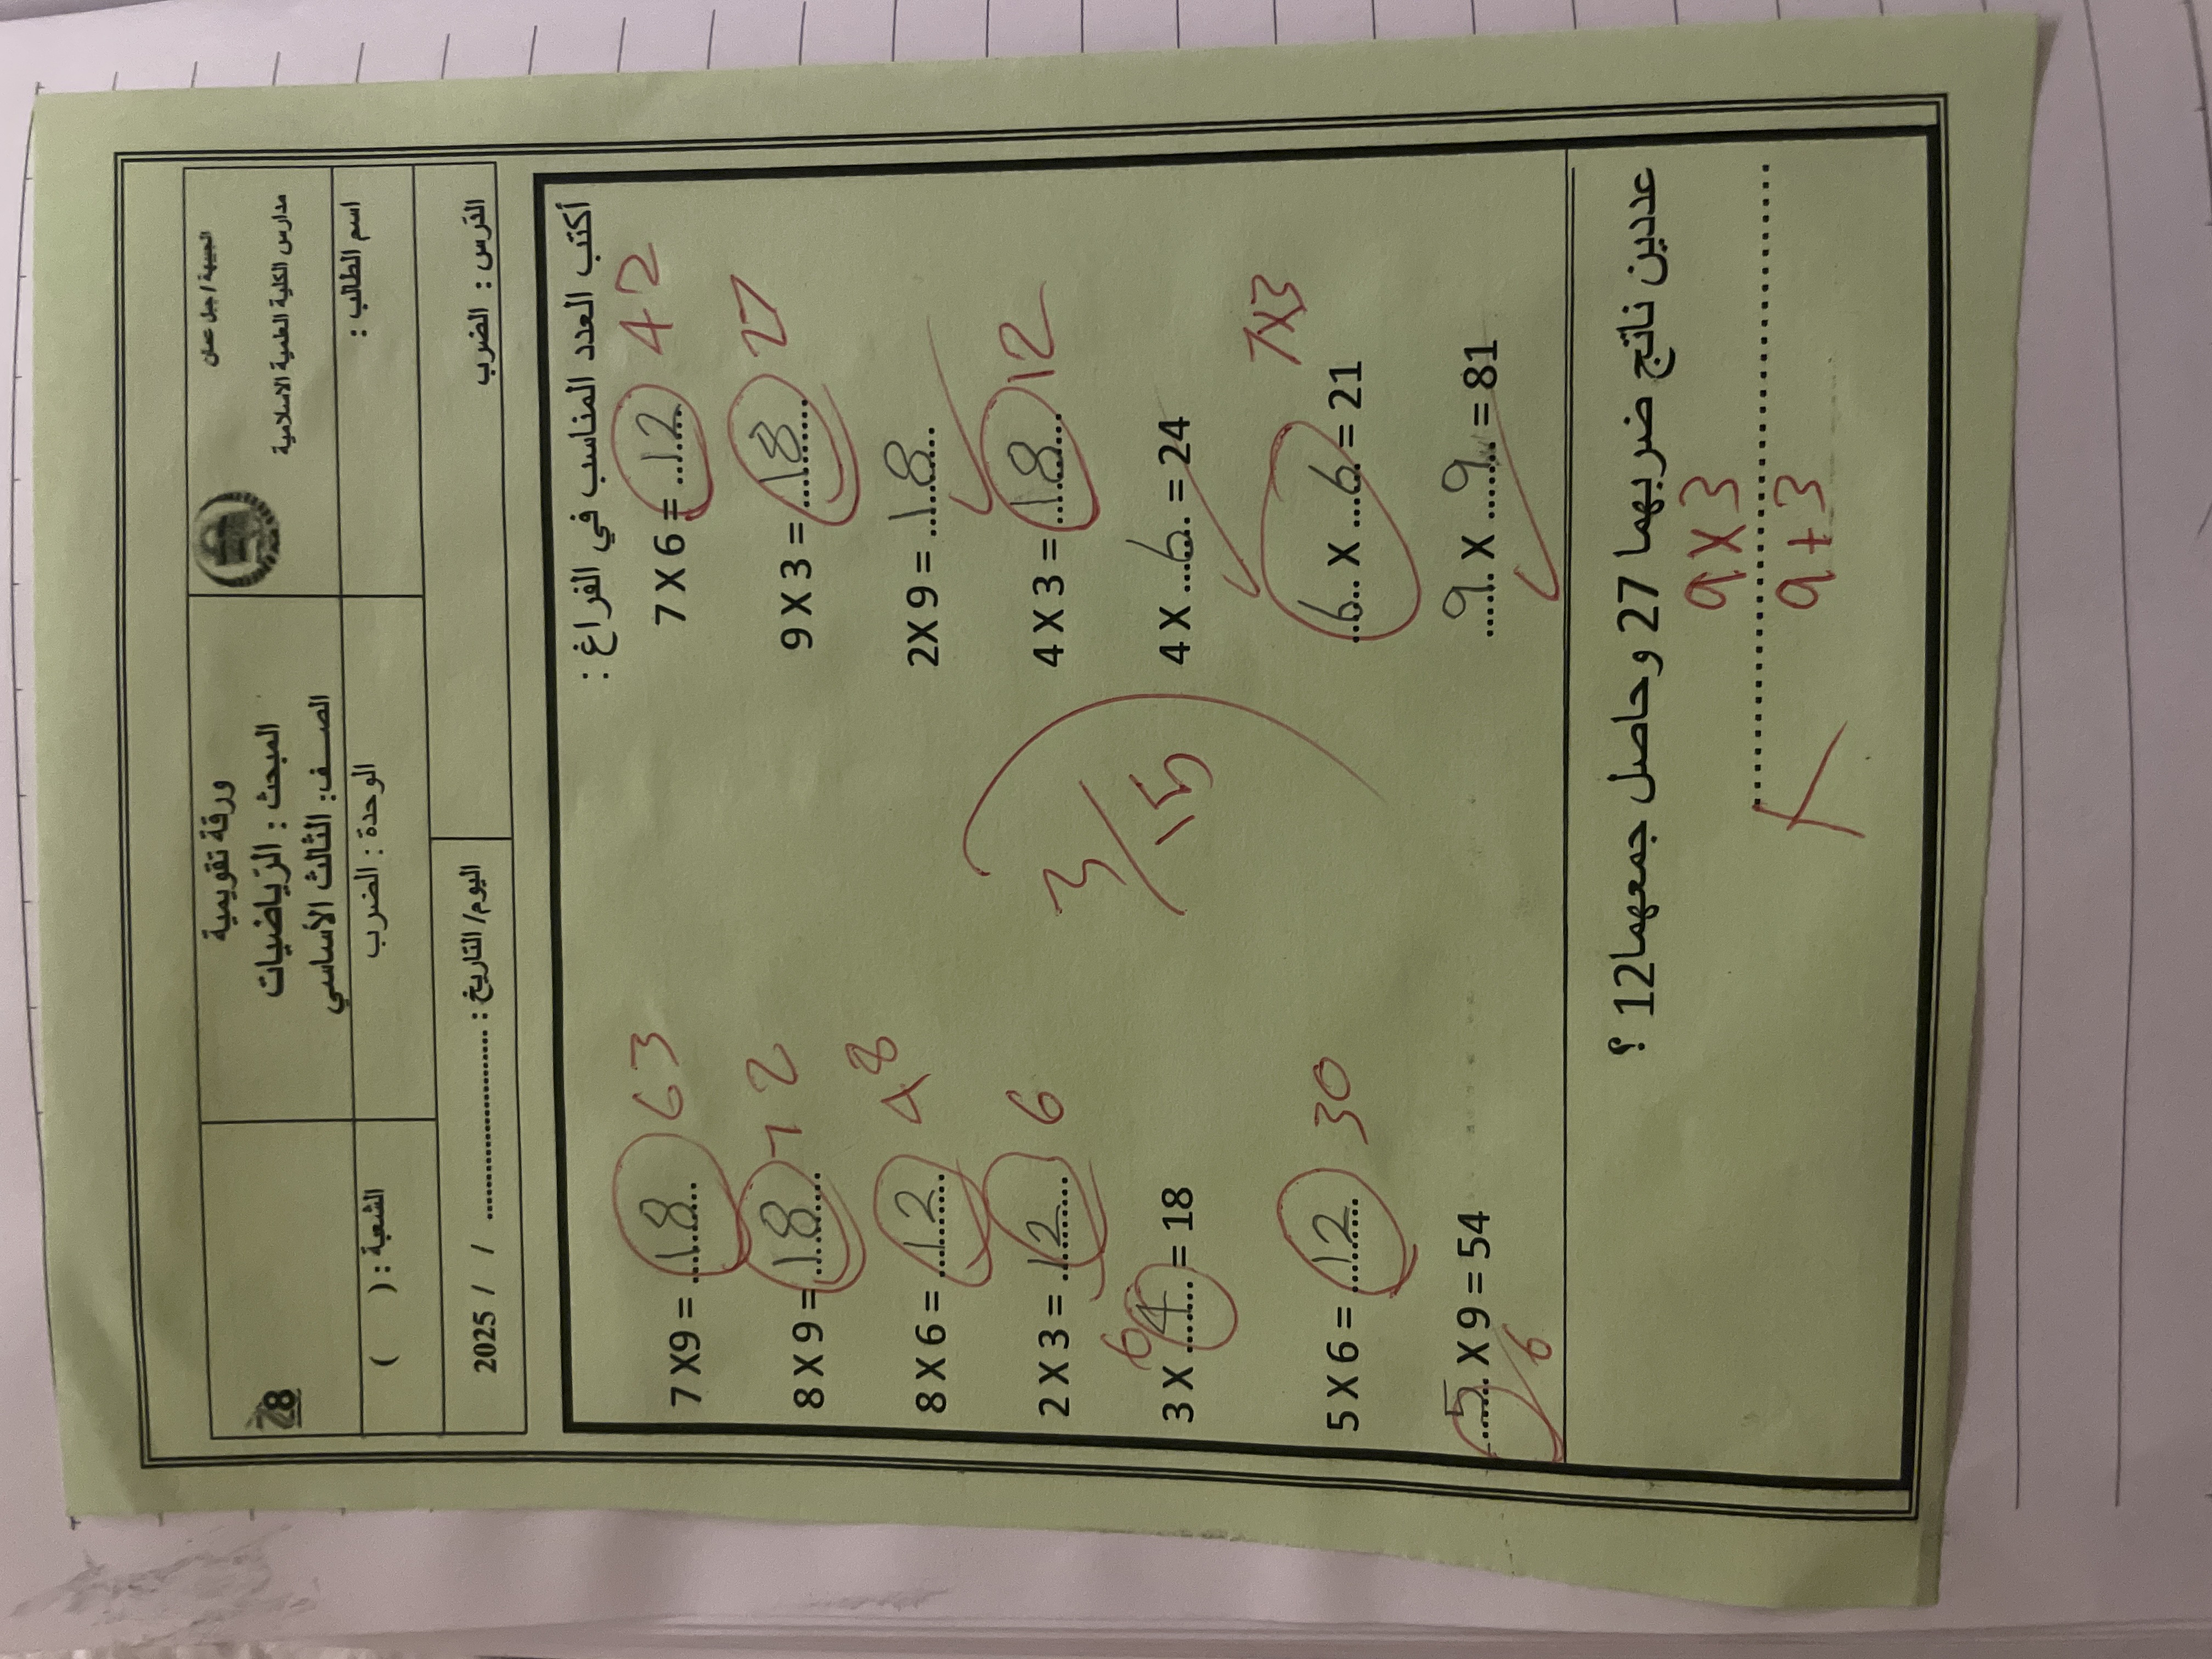 مدارس الكلية العلمية الاسلامية
الجبيهة / جبل عمان
ورقة تقويمية
المبحث : الرّياضيات
الصـــف: الثالث الأساسي
اسم الطالب :
الوحدة : الضرب
الشعبة : ( )
الدّرس : الضرب
اليوم/ التاريخ : .................... / / 2025
أكتب العدد المناسب في الفراغ :
7 X 6 = 12 42
7 X9 = 18 63
9 X 3 = 18 27
8 X 9 = 18 72
2X 9 = 18
8 X 6 = 12 48
4 X 3 = 18 12
2 X 3 = 12 6
3/15
4 X 6 = 24
3 X 4 = 18 6
6 X 6 = 21 7X3
5 X 6 = 12 30
9 X 9 = 81
5 X 9 = 54 6
عددين ناتج ضربهما 27 و حاصل جمعهما12 ؟
9 X 3
9 + 3